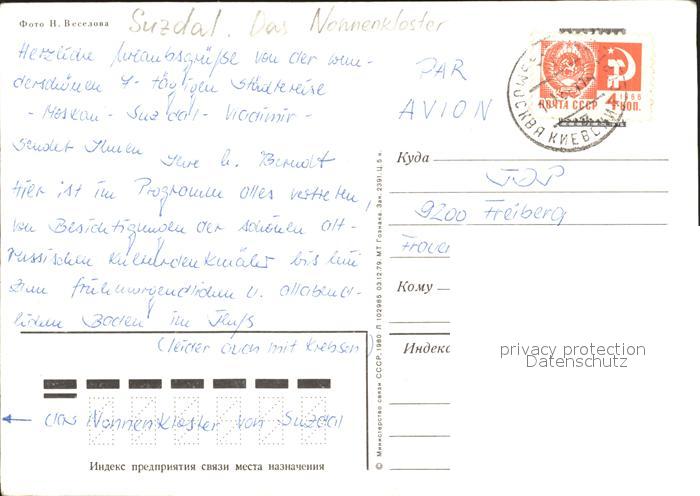 Фото Н. Веселова
Suzdal. Das Nonnenkloster
Herzliche Urlaubsgrüße von der wun-
derschönen 7-tägigen Städtereise
- Moskau - Suzdal - Vladimir -
sendet Ihnen Ihre H. Berndt
Hier ist im Programm alles vertreten,
von Besichtigungen der schönen alt-
russischen Kulturdenkmäler bis hin
zum frühmorgendlichen u. allabend-
lichen Baden im Fluß
(leider auch mit Krebsen)
← das Nonnenkloster von Suzdal
Индекс предприятия связи места назначения
© Министерство связи СССР, 1980 Л 102985 03.12.79. МТ Гознака. Зак. 2391. Ц. 5 к.
PAR
AVION
ПОЧТА СССР 1966
4 КОП.
МОСКВА КИЕВСКИЙ
Куда
9200 Freiberg
Кому
Индекс
privacy protection
Datenschutz